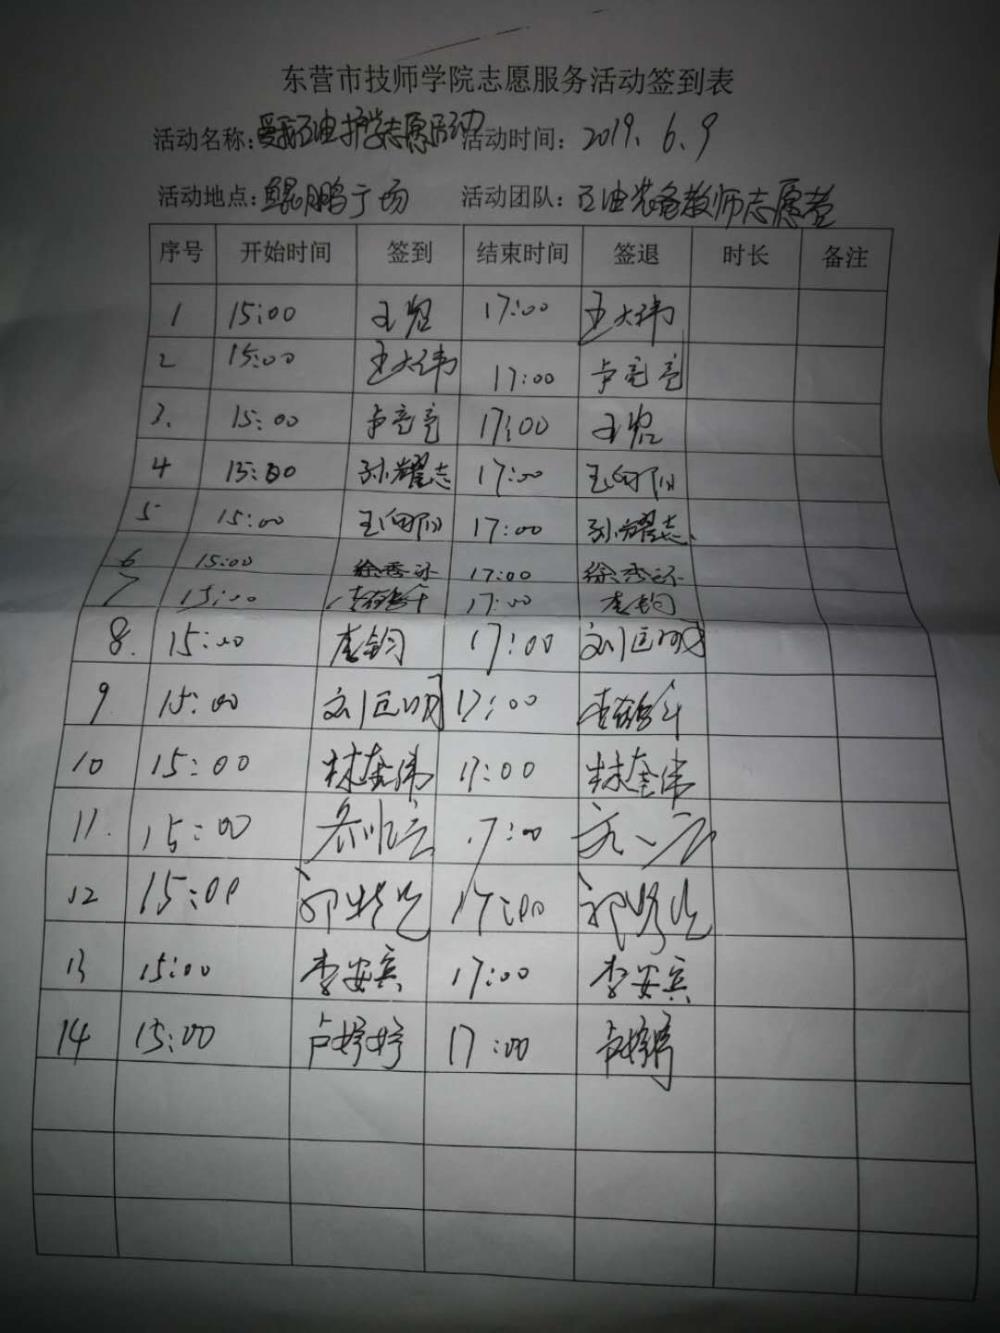 东营市技师学院志愿服务活动签到表
活动名称:爱我石油护学志愿活动 活动时间: 2019.6.9
活动地点: 鲲鹏广场 活动团队: 石油装备教师志愿者
序号 开始时间 签到 结束时间 签退 时长 备注
1 15:00 17:00 王大伟
2 15:00 王大伟 17:00 卢亮亮
3. 15:00 卢亮亮 17:00
4 15:00 孙耀志 17:00 王向阳
5 15:00 王向阳 17:00 孙耀志
6 15:00 17:00
7 15:00 17:00 李钧
8. 15:00 李钧 17:00
9 15:00 17:00
10 15:00 林奎伟 17:00 林奎伟
11. 15:00 17:00
12 15:00 17:00
13 15:00 李安宾 17:00 李安宾
14 15:00 卢婷婷 17:00 卢婷婷